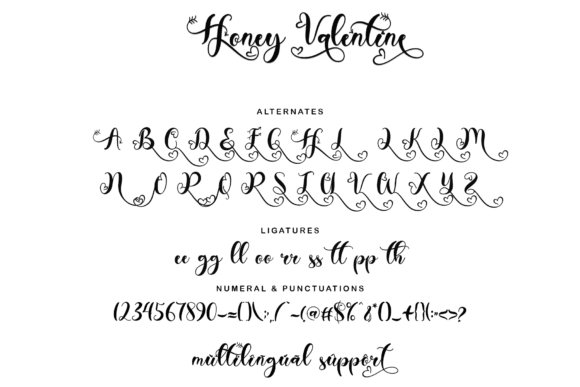 Honey Valentine
ALTERNATES
A B C D E F G H I J K L M
N O P Q R S T U V W X Y Z
LIGATURES
ee gg ll oo rr ss tt pp th
NUMERAL & PUNCTUATIONS
multilingual support